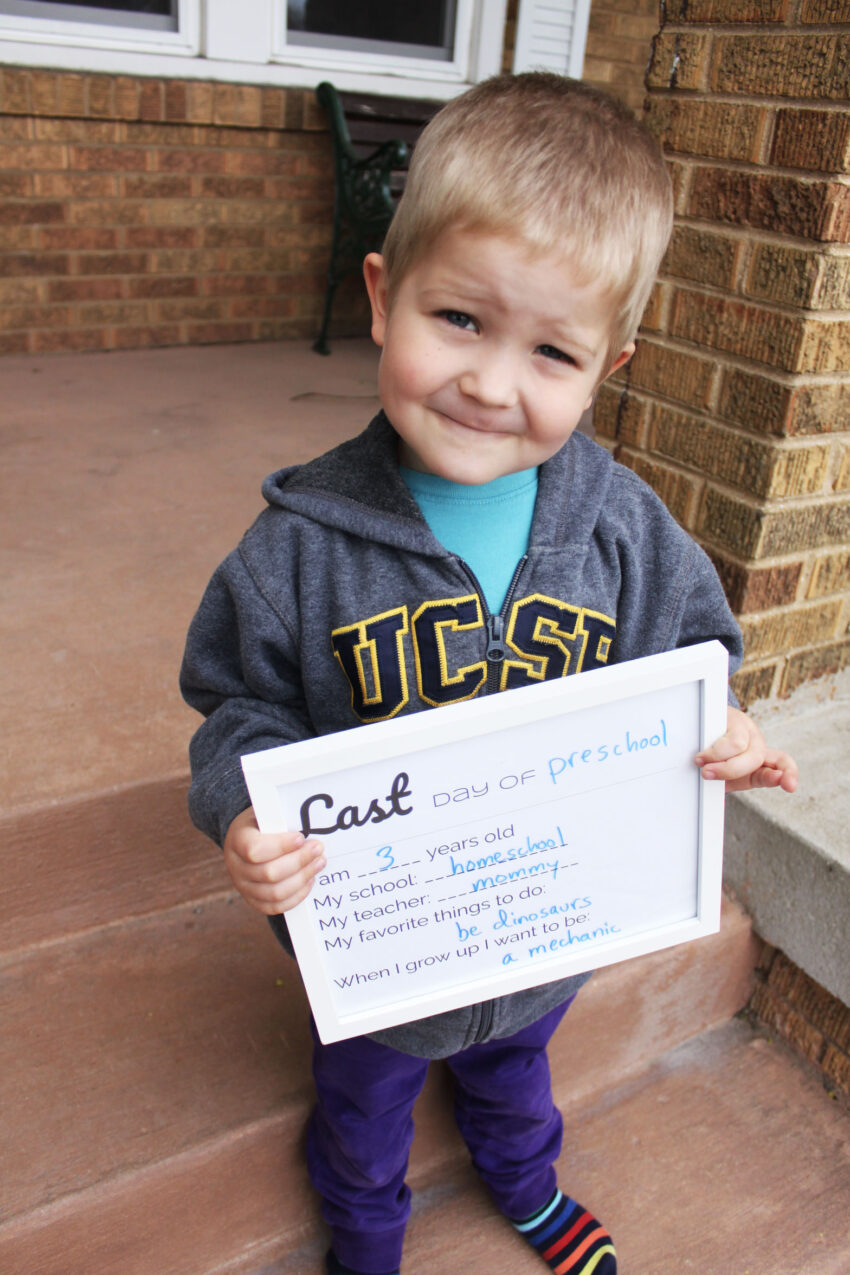 UCSB
Last DAY OF preschool
I am 3 years old
My school: homeschool
My teacher: mommy
My favorite things to do:
be dinosaurs
When I grow up I want to be:
a mechanic